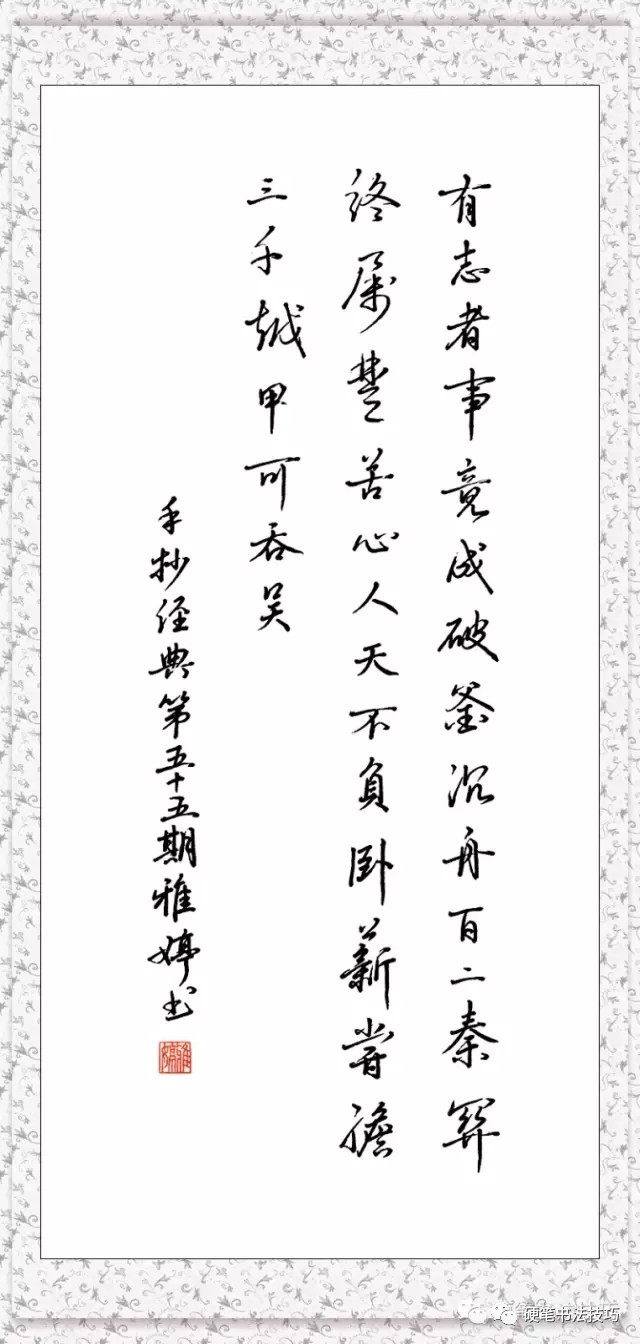 有志者事竟成破釜沉舟百二秦关
终属楚苦心人天不负卧薪尝胆
三千越甲可吞吴
手抄经典第五十五期雅婷书
硬笔书法技巧